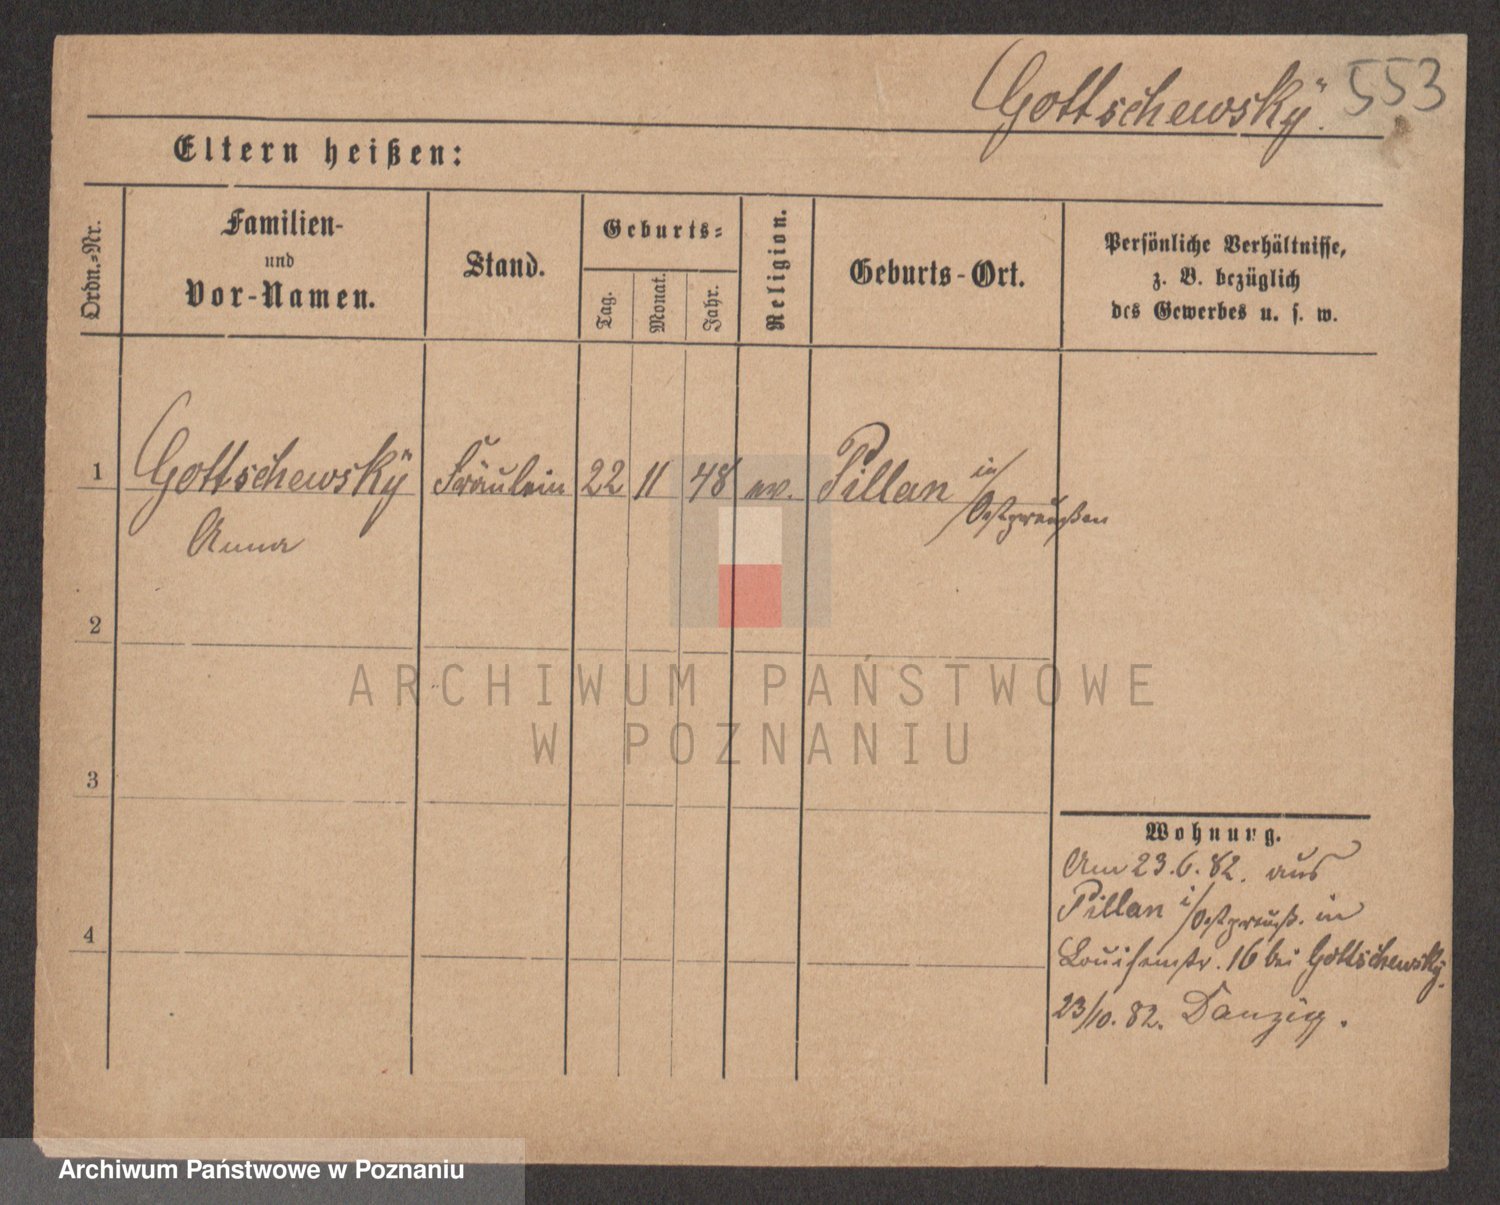 Gottschewskÿ. 553
Eltern heißen:
Ordn.-Nr.
Familien-
und
Vor-Namen.
Stand.
Geburts-
Tag.
Monat.
Jahr.
Religion.
Geburts-Ort.
Persönliche Verhältnisse,
z. B. bezüglich
des Gewerbes u. s. w.
1 Gottschewskÿ Fräulein 22 11 48 ev. Pillau in/Ostpreußen
Anna
2
3
4
ARCHIWUM PAŃSTWOWE
W POZNANIU
Wohnung.
Am 23.6.82. aus
Pillau i/Ostpreuß. in
Louisenstr. 16 bei Gottschewsky.
23/10. 82. Danzig.
Archiwum Państwowe w Poznaniu